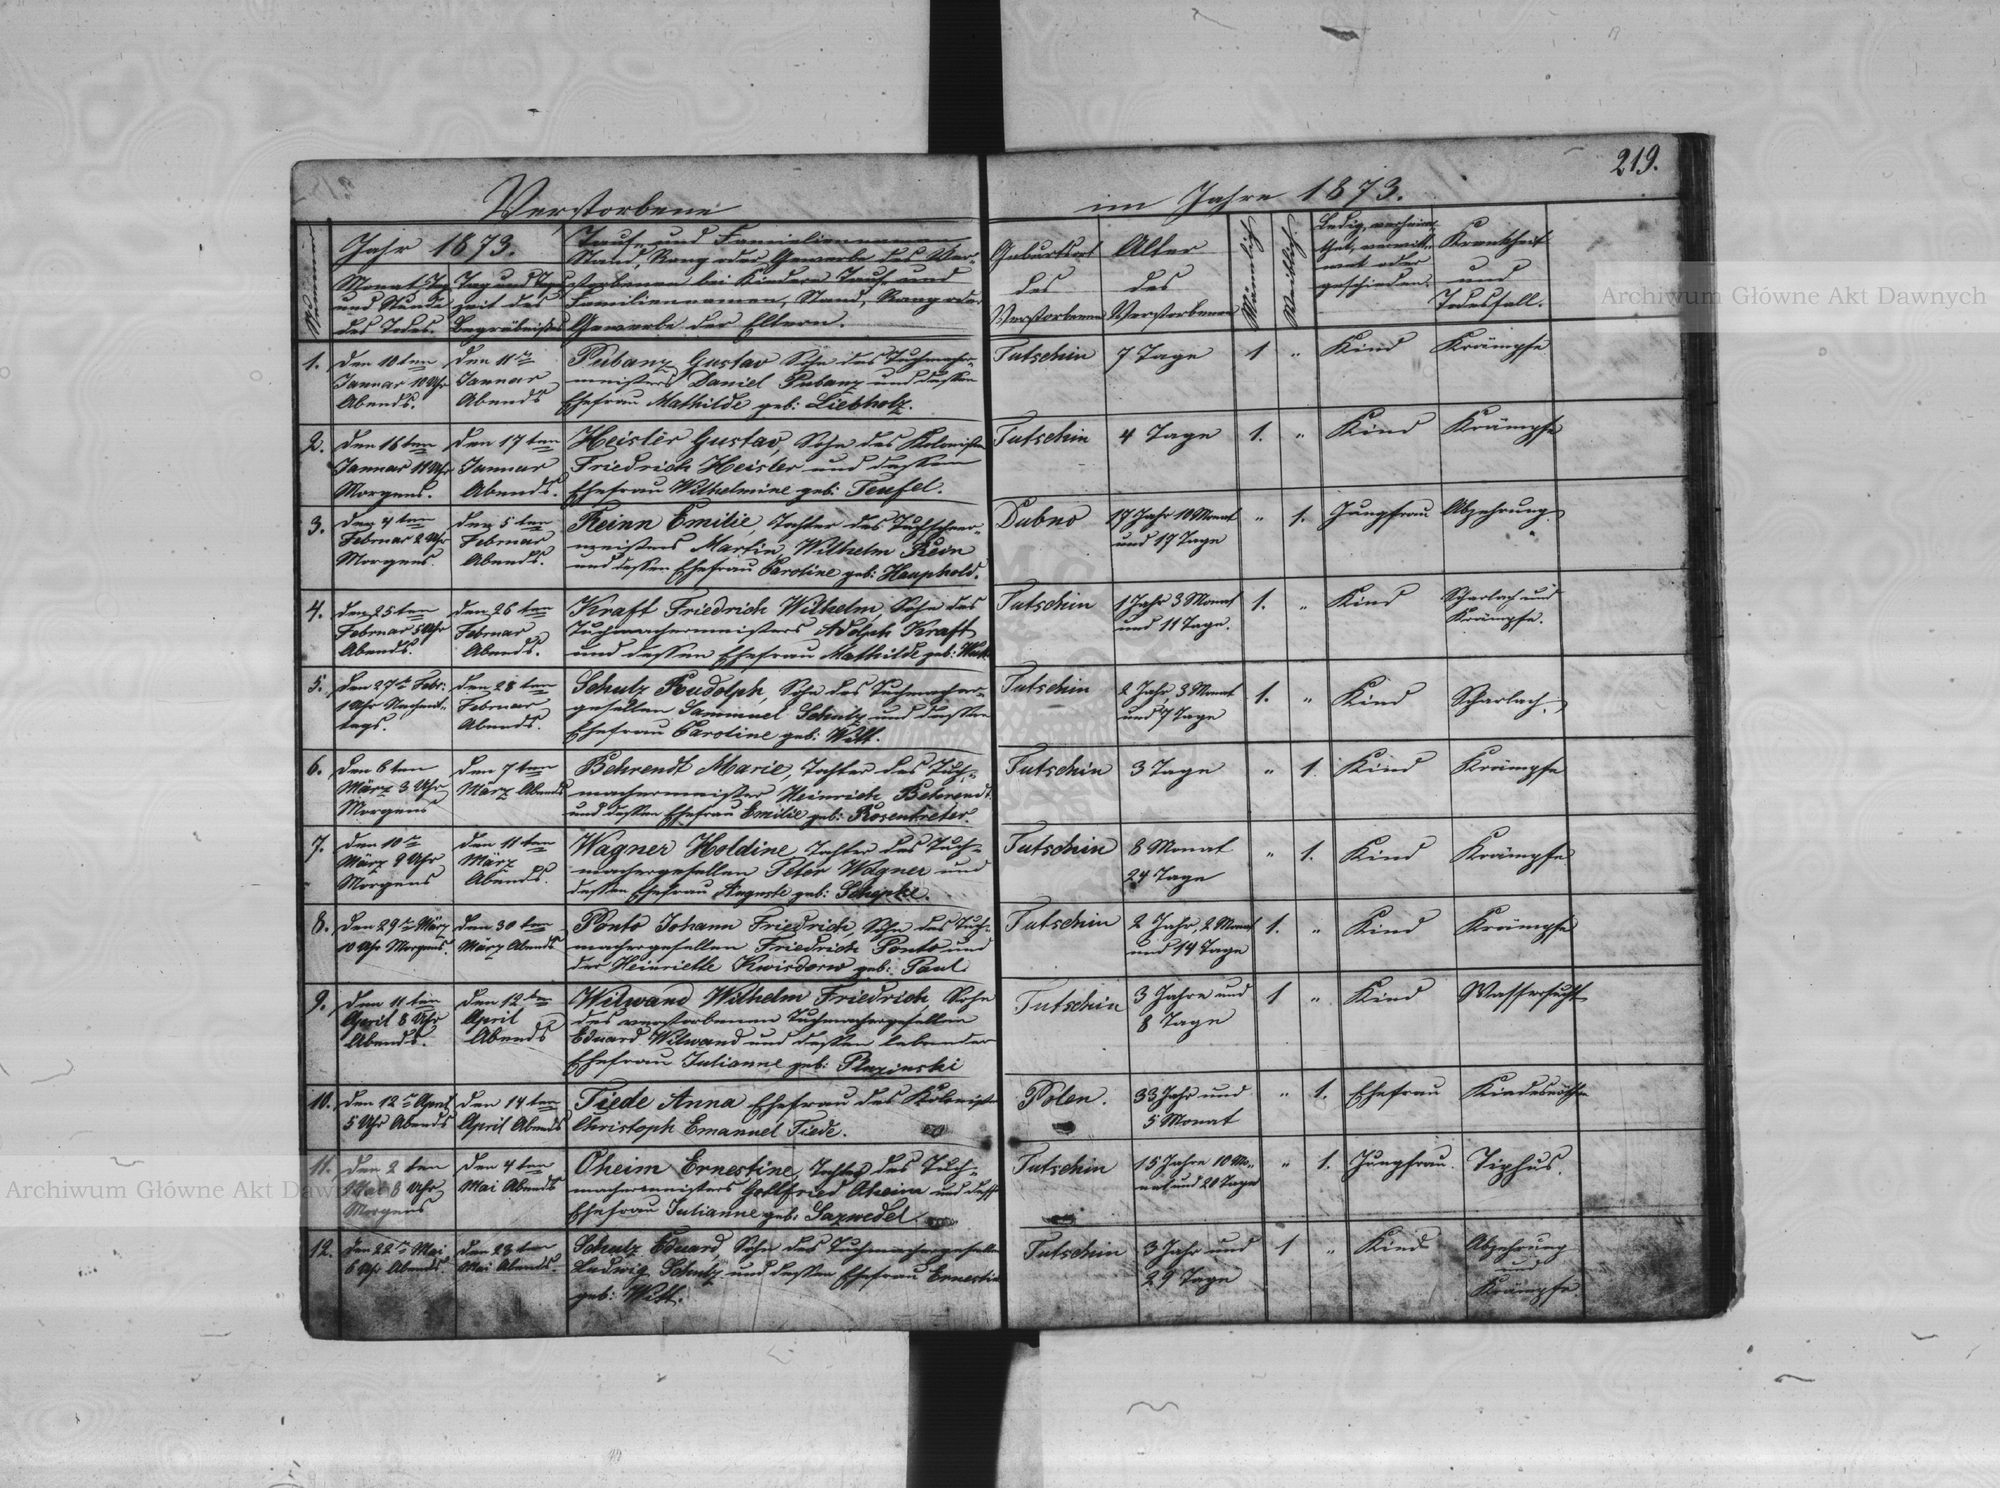 219.
Verstorbene im Jahre 1873.
Nummer
Jahr 1873.
Monat, Tag
und Stunde
des Todes.
Tag und Tages
zeit des
Begräbnisses
Tauf- und Familiennamen
Stand, Rang oder Gewerbe des Ver-
storbenen bei Kindern Tauf- und
Familiennamen, Stand, Rang oder
Gewerbe der Eltern.
Geburtsort
des
Verstorbenen
Alter
des
Verstorbenen
Männlich
Weiblich.
Ledig, verheira-
thet, verwitt-
wet oder
geschieden.
Krankheit
und
Todesfall.
1.
den 10ten
Januar 10 Uhr
Abends.
den 11ten
Januar
Abends
Pubanz Gustav Sohn des Tuchmacher-
meisters Daniel Pubanz und dessen
Ehefrau Mathilde geb: Liebholz.
Tutschin
7 Tage
1
"
Kind
Krämpfe
2.
den 16ten
Januar 11 Uhr
Morgens.
den 17ten
Januar
Abends.
Heister Gustav, Sohn des Kolonisten
Friedrich Heister und dessen
Ehefrau Wilhelmine geb: Teufel.
Tutschin
4 Tage
1.
"
Kind
Krämpfe
3.
den 4ten
Februar 2 Uhr
Morgens.
den 5ten
Februar
Abends.
Reinn Emilie, Tochter des Tuchscheer-
meisters Martin Wilhelm
und dessen Ehefrau Caroline geb: Hauphold.
Dubno
17 Jahr 10 Monat
und 17 Tage
"
1.
Jungfrau
Abzehrung
4.
den 25ten
Februar 5 Uhr
Abends.
den 26ten
Februar
Abends.
Kraft Friedrich Wilhelm Sohn des
Tuchmachermeisters Adolph Kraft
und dessen Ehefrau Mathilde geb:
Tutschin
1 Jahr 3 Monat
und 11 Tage.
1.
"
Kind
Scharlach und
Krämpfe.
5.
den 27ten Febr:
1 Uhr Nachmit-
tags.
den 28ten
Februar
Abends.
Schulz Roudolph, Sohn des Tuchmacher-
gesellen Sammuel Schulz und dessen
Ehefrau Caroline geb: Witt.
Tutschin
2 Jahr, 3 Monat
und 7 Tage
1.
"
Kind
Scharlach.
6.
den 6ten
März 3 Uhr
Morgens
den 7ten
März Abends
Behrendt Marie, Tochter des Tuch-
machermeister Heinrich Behrendt
und dessen Ehefrau Emilie geb: Rosentreter.
Tutschin
3 Tage
"
1.
Kind
Krämpfe
7.
den 10ten
März 9 Uhr
Morgens
den 11ten
März
Abends.
Wagner Holdine, Tochter des Tuch-
machergesellen Peter Wagner und
dessen Ehefrau Auguste geb: Schepke.
Tutschin
8 Monat
24 Tage
"
1.
Kind
Krämpfe
8.
den 29ten März
10 Uhr Morgens.
den 30ten
März Abends
Ponto Johann Friedrich, Sohn des Tuch-
machergesellen Friedrich Ponto und
der Heinriette Kwisdorw geb: Paul.
Tutschin
2 Jahr, 2 Monat
und 14 Tage
1.
"
Kind
Krämpfe
9.
den 11ten
April 8 Uhr
Abends.
den 12ten
April
Abends
Wilwand Wilhelm Friedrich, Sohn
des verstorbenen Tuchmachergesellen
Eduard Wilwand und dessen lebender
Ehefrau Julianne geb: Plazinski
Tutschin
3 Jahre und
8 Tage
1
"
Kind
Wassersucht
10.
den 12ten April
5 Uhr Abends
den 14ten
April Abends
Tiede Anna Ehefrau des Kolonisten
Christoph Emanuel Tiede.
Polen.
33 Jahr und
5 Monat
"
1.
Ehefrau
Kindesnöthen
11.
den 2ten
Mai 8 Uhr
Morgens
den 4ten
Mai Abends
Oheim Ernestine, Tochter des Tuch-
machermeisters Gottfried Oheim und dess.
Ehefrau Julianne geb: Sazwedel.
Tutschin
15 Jahre 10 Mo-
nat und 20 Tage
"
1.
Jungfrau.
Tiphus.
12.
den 22ten Mai
6 Uhr Abends.
den 23ten
Mai Abends.
Schulz Eduard, Sohn des Tuchmachergesellen
Ludwig Schulz und dessen Ehefrau Ernestine
geb: Witt.
Tutschin
3 Jahr und
29 Tage
1
"
Kind
Abzehrung
und
Krämpfe.
Archiwum Główne Akt Dawnych
Archiwum Główne Akt Dawnych